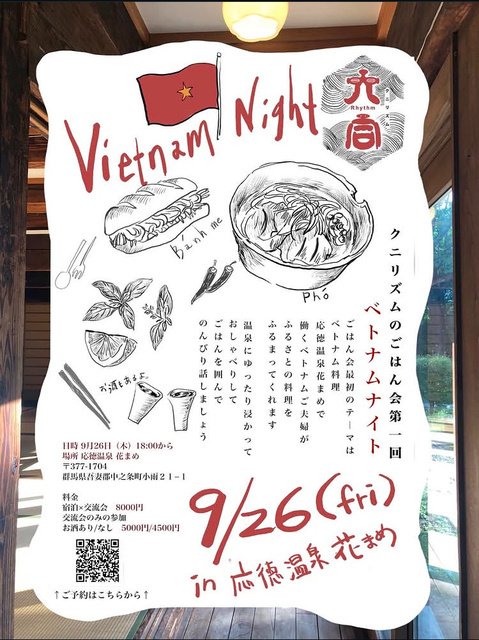 Vietnam Night
六合
Rhythm
クニリズム
Bánh me
phở
お酒もあるよ。
クニリズムのごはん会第一回
ベトナムナイト
ごはん会最初のテーマは
ベトナム料理
応徳温泉花まめで
働くベトナムご夫婦が
ふるさとの料理を
ふるまってくれます
温泉にゆったり浸かって
おしゃべりして
ごはんを囲んで
のんびり話しましょう
日時 9月26日（木）18:00から
場所 応徳温泉 花まめ
〒377-1704
群馬県吾妻郡中之条町小雨２１−１
料金
宿泊×交流会　8000円
交流会のみの参加
お酒あり/なし　5000円/4500円
↑ご予約はこちらから↑
9/26(fri)
in 応徳温泉 花まめ